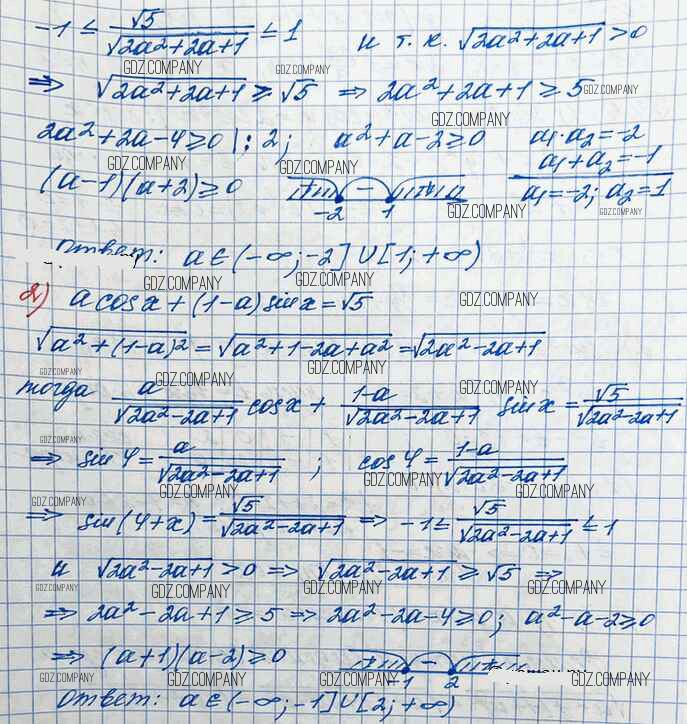 -1 ≤ √5/√(2a²+2a+1) ≤ 1 и т. к. √(2a²+2a+1) > 0
GDZ.COMPANY GDZ.COMPANY
⇒ √(2a²+2a+1) ≥ √5 ⇒ 2a²+2a+1 ≥ 5 GDZ.COMPANY
GDZ.COMPANY
2a²+2a-4 ≥ 0 | : 2; a²+a-2 ≥ 0 a₁·a₂ = -2
GDZ.COMPANY GDZ.COMPANY a₁+a₂ = -1
(a-1)(a+2) ≥ 0 – a₁ = -2; a₂ = 1
-2 1 GDZ.COMPANY GDZ.COMPANY
Ответ: a ∈ (-∞; -2] ∪ [1; +∞)
GDZ.COMPANY GDZ.COMPANY
2) a cos x + (1-a) sin x = √5 GDZ.COMPANY
√(a²+(1-a)²) = √(a²+1-2a+a²) = √(2a²-2a+1)
GDZ.COMPANY GDZ.COMPANY GDZ.COMPANY
тогда a/√(2a²-2a+1) cos x + (1-a)/√(2a²-2a+1) sin x = √5/√(2a²-2a+1)
GDZ.COMPANY GDZ.COMPANY GDZ.COMPANY
⇒ sin φ = a/√(2a²-2a+1) ; cos φ = (1-a)/√(2a²-2a+1)
GDZ.COMPANY GDZ.COMPANY GDZ.COMPANY GDZ.COMPANY
⇒ sin(φ+x) = √5/√(2a²-2a+1) ⇒ -1 ≤ √5/√(2a²-2a+1) ≤ 1
GDZ.COMPANY GDZ.COMPANY
и √(2a²-2a+1) > 0 ⇒ √(2a²-2a+1) ≥ √5 ⇒
GDZ.COMPANY GDZ.COMPANY GDZ.COMPANY GDZ.COMPANY
⇒ 2a²-2a+1 ≥ 5 ⇒ 2a²-2a-4 ≥ 0; a²-a-2 ≥ 0
⇒ (a+1)(a-2) ≥ 0 –
-1 2
GDZ.COMPANY GDZ.COMPANY GDZ.COMPANY GDZ.COMPANY GDZ.COMPANY
Ответ: a ∈ (-∞; -1] ∪ [2; +∞)